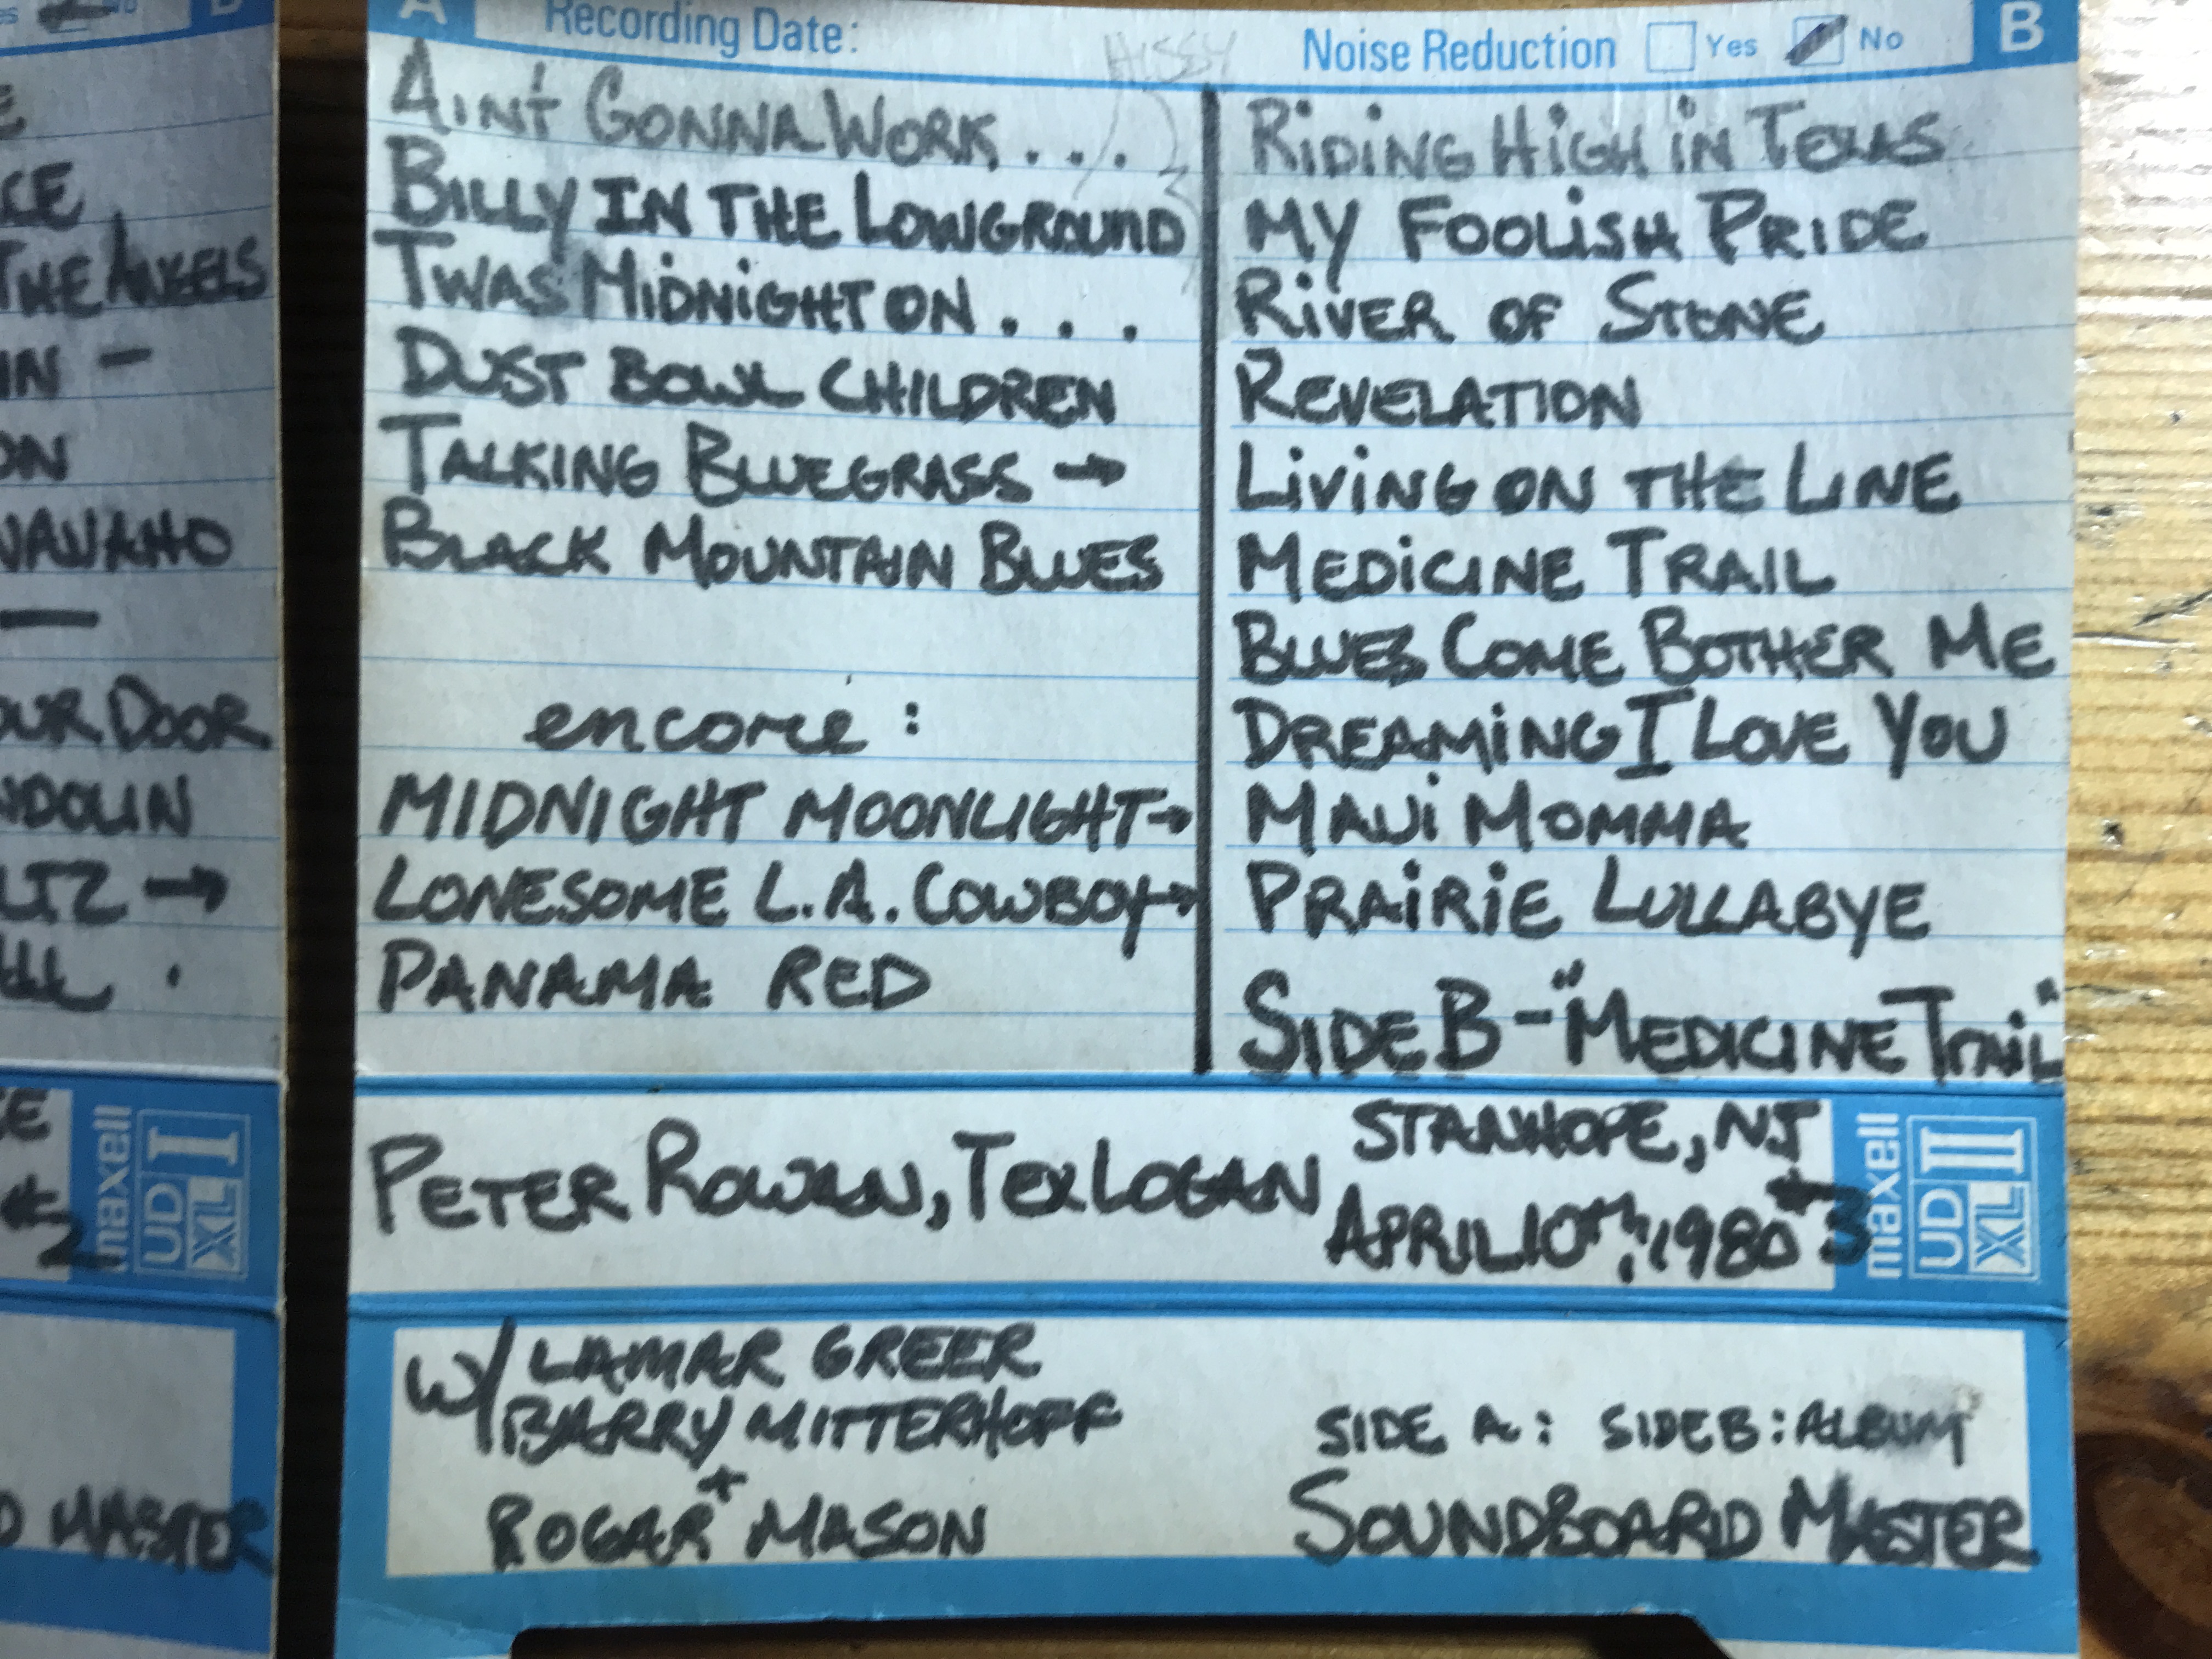 A Recording Date: Noise Reduction Yes No B
HISSY
AIN'T GONNA WORK . . .
BILLY IN THE LOWGROUND
TWAS MIDNIGHT ON . . . .
DUST BOWL CHILDREN
TALKING BLUEGRASS →
BLACK MOUNTAIN BLUES
encore :
MIDNIGHT MOONLIGHT→
LONESOME L.A. COWBOY→
PANAMA RED
RIDING HIGH IN TEXAS
MY FOOLISH PRIDE
RIVER OF STONE
REVELATION
LIVING ON THE LINE
MEDICINE TRAIL
BLUES COME BOTHER ME
DREAMING I LOVE YOU
MAUI MOMMA
PRAIRIE LULLABYE
SIDE B - "MEDICINE TRAIL"
STANHOPE, NJ
PETER ROWAN, TEX LOGAN, APRIL 10TH, 1980 #3
maxell
UD XL II
W/ LAMAR GREER
BARRY MITTERHOFF
+
ROGER MASON
SIDE A: SIDE B: ALBUM
SOUNDBOARD MASTER
B
CE
THE ANGELS
IN -
ON
VANAHO
—
OUR DOOR
NDOLIN
LTZ →
ALL .
#2
maxell
UD XL I
D MASTER